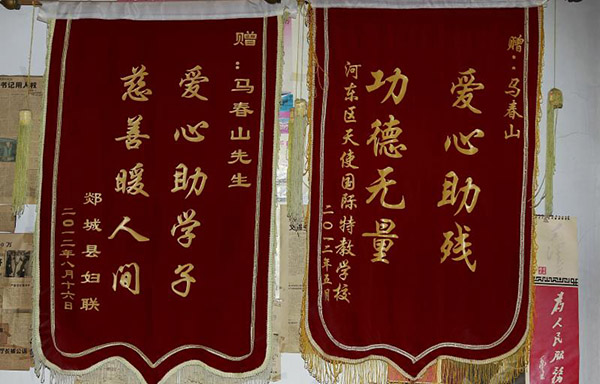 赠：马春山先生
爱心助学子
慈善暖人间
郯城县妇联
二〇一二年八月十六日
赠：马春山
爱心助残
功德无量
河东区天使国际特教学校
二〇一二年五月
书记用人权
為人民服務